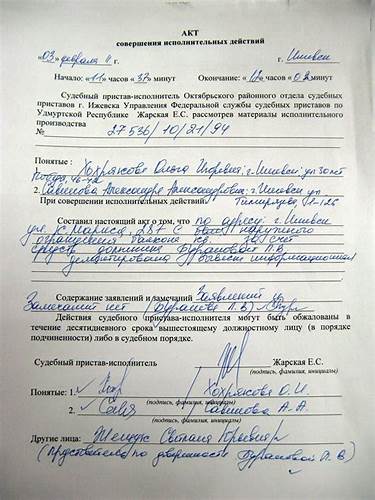 АКТ
совершения исполнительных действий
«03» февраля 11 г. г. Ижевск
Начало: «11» часов «37» минут Окончание: «12» часов «02» минут
Судебный пристав-исполнитель Октябрьского районного отдела судебных
приставов г. Ижевска Управления Федеральной службы судебных приставов по
Удмуртской Республике Жарская Е.С. рассмотрев материалы исполнительного
производства
№ 27536/10/21/94
Понятые : Хохрякова Ольга Игоревна; г. Ижевск, ул 30 лет
Победы,
2. Савинова Александра Александровна; г. Ижевск ул
При совершении исполнительных действий: Тимирязева,
Составил настоящий акт о том, что по адресу: г. Ижевск
ул. К. Маркса, 287 с наружного
ограждения балкона кв. за счет
средств должника Бурановой Л.В.
демонтирована вывеска информационная
Содержание заявлений и замечаний Заявлений и
Замечаний нет (Буранова Л.В)
Действия судебного пристава-исполнителя могут быть обжалованы в
течение десятидневного срока вышестоящему должностному лицу (в порядке
подчиненности) либо в судебном порядке.
Судебный пристав-исполнитель Жарская Е.С.
(подпись, фамилия, инициалы)
Понятые: 1. Хохрякова О.И.
(подпись, фамилия, инициалы)
2. Савинова А.А.
(подпись, фамилия, инициалы)
Другие лица: Светлана Юрьевна
(представитель по доверенности Бурановой Л.В)